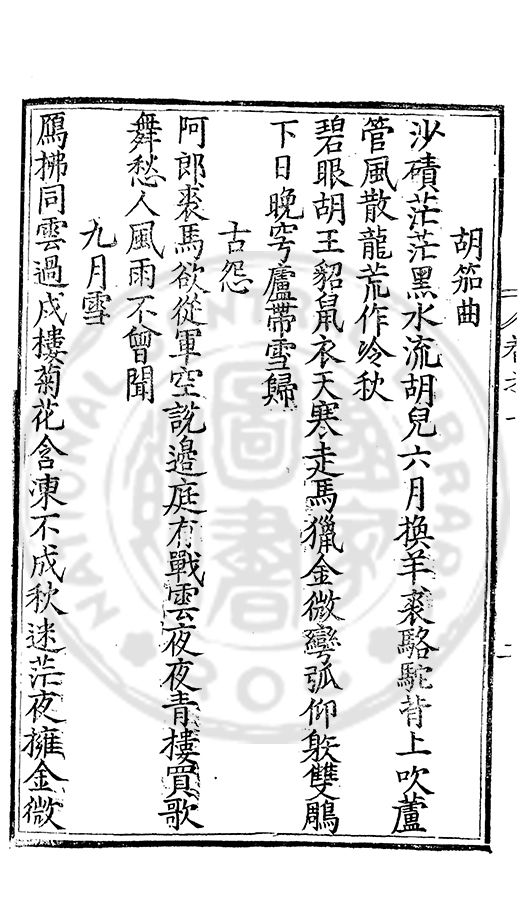 胡笳曲
沙磧茫茫黑水流胡兒六月換羊裘駱駝背上吹蘆
管風散龍荒作冷秋
碧眼胡王貂鼠衣天寒走馬獵金微彎弧仰射雙鵰
下日晚穹廬帶雪歸
古怨
阿郎裘馬欲從軍空説邊庭有戰雲夜夜青樓買歌
舞愁人風雨不曾聞
九月雪
鴈拂同雲過戍樓菊花含凍不成秋迷茫夜擁金微